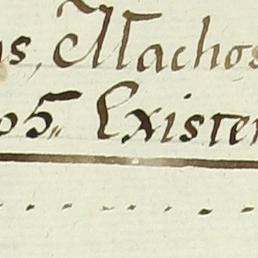 s, Machos
05,, Existen